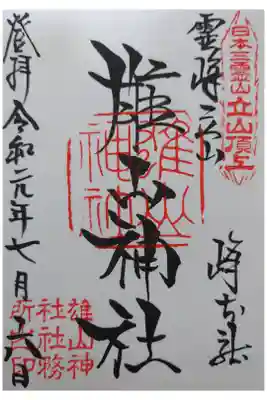 日本三霊山
立山頂上
霊峰立山
峰本社
雄山神社
雄山
神社
登拝 令和元年七月六日
雄山神
社社務
所之印